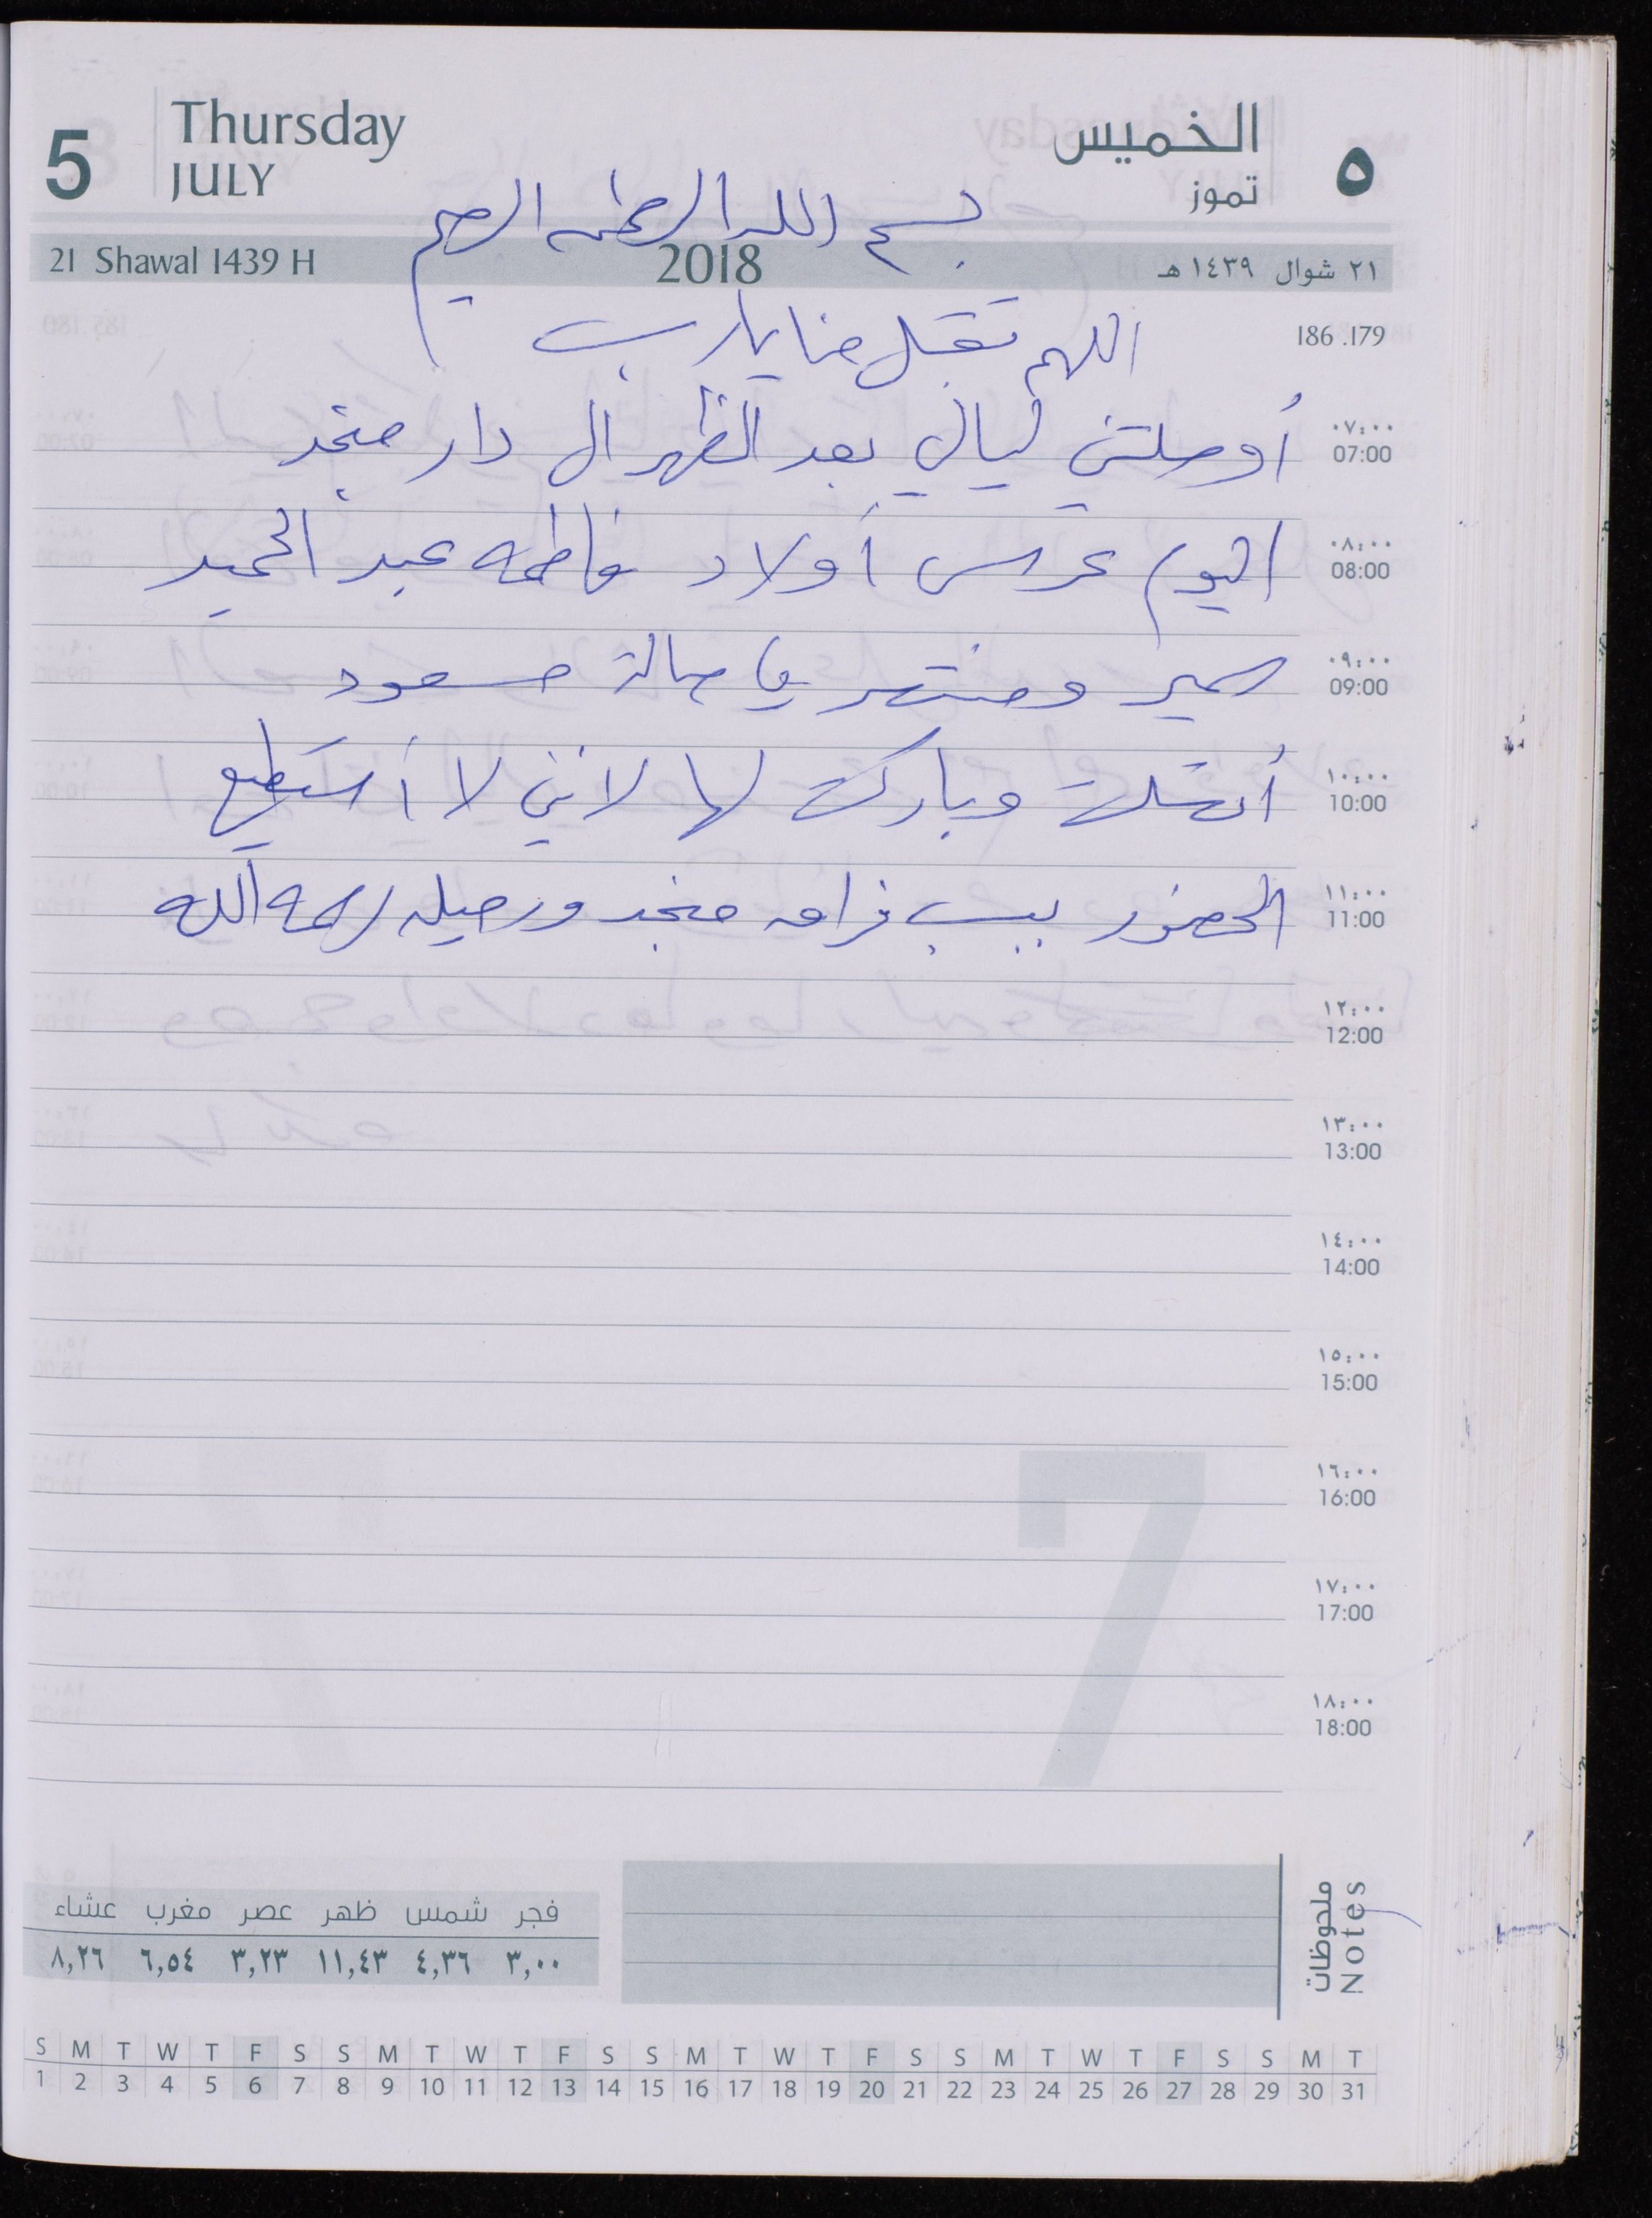 5
Thursday
JULY
الخميس
تموز
٥
بسم الله الرحمن الرحيم
21 Shawal 1439 H
2018
٢١ شوال ١٤٣٩ هـ
اللهم تقبل منا يارب
186 .179
أوصلتني ليالي بعد الظهر ال دار منجد
٠٧:٠٠
07:00
اليوم عرس أولاد فاطمه عبد الحميد
٠٨:٠٠
08:00
سمير ومنتصر في صالة مسعود
٠٩:٠٠
09:00
وباركت لها لانني لا أستطيع
١٠:٠٠
10:00
الحضور بسبب فراق منجد ورحيله رحمه الله
١١:٠٠
11:00
١٢:٠٠
12:00
١٣:٠٠
13:00
١٤:٠٠
14:00
١٥:٠٠
15:00
١٦:٠٠
16:00
١٧:٠٠
17:00
١٨:٠٠
18:00
7
ملحوظات
Notes
فجر شمس ظهر عصر مغرب عشاء
٣,٠٠ ٤,٣٦ ١١,٤٣ ٣,٢٣ ٦,٥٤ ٨,٢٦
S M T W T F S S M T W T F S S M T W T F S S M T W T F S S M T
1 2 3 4 5 6 7 8 9 10 11 12 13 14 15 16 17 18 19 20 21 22 23 24 25 26 27 28 29 30 31